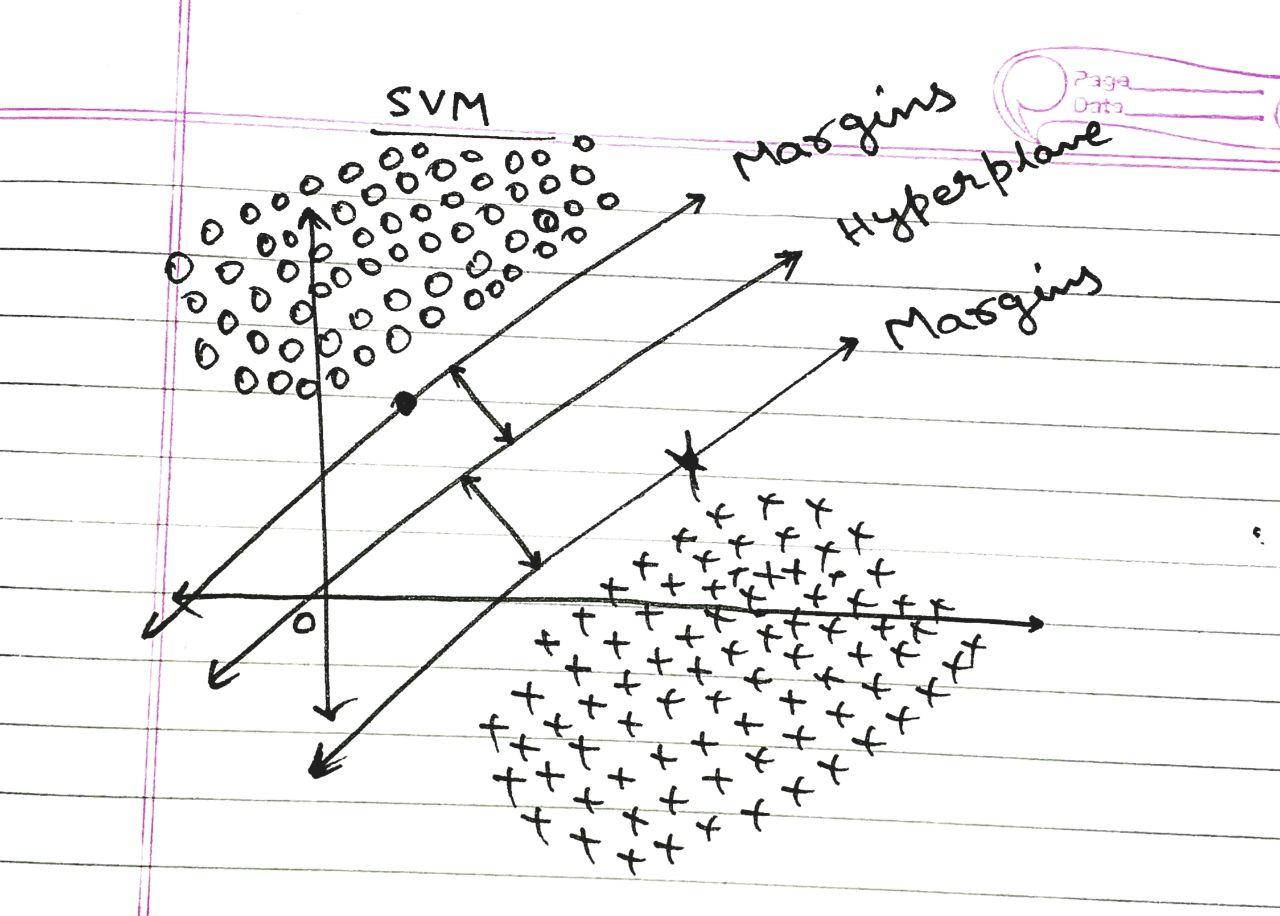 SVM
Page
Date
Margins
Hyperplane
Margins
O